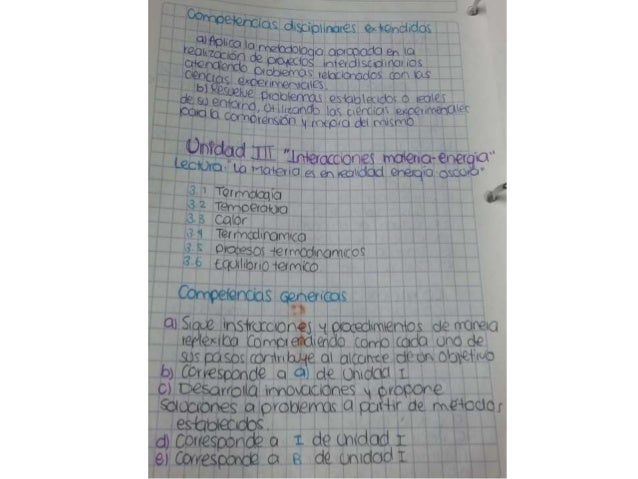 Competencias disciplinares extendidas
a) Aplica la metodologia apropiada en la
realización de proyectos interdisciplinarios
atendiendo problemas relacionados con las
ciencias experimentales.
b) Resuelve problemas establecidos o reales
de su entorno, utilizando las ciencias experimentales
para la comprensión y mejora del mismo.
Unidad III "Interacciones materia-energia"
Lectura: "La materia es en realidad energia oscura"
3.1 Termologia
3.2 Temperatura
3.3 Calor
3.4 Termodinamica
3.5 procesos termodinamicos
3.6 Equilibrio termico
Competencias Genericas
a) Sigue instrucciones y procedimientos de manera
reflexiba comprendiendo como cada uno de
sus pasos contribuye al alcance de un objetivo
b) Corresponde a a) de Unidad I
c) Desarrolla innovaciones y propone
soluciones a problemas a partir de metodos
establecidos.
d) Corresponde a I de unidad I
e) Corresponde a B de unidad I